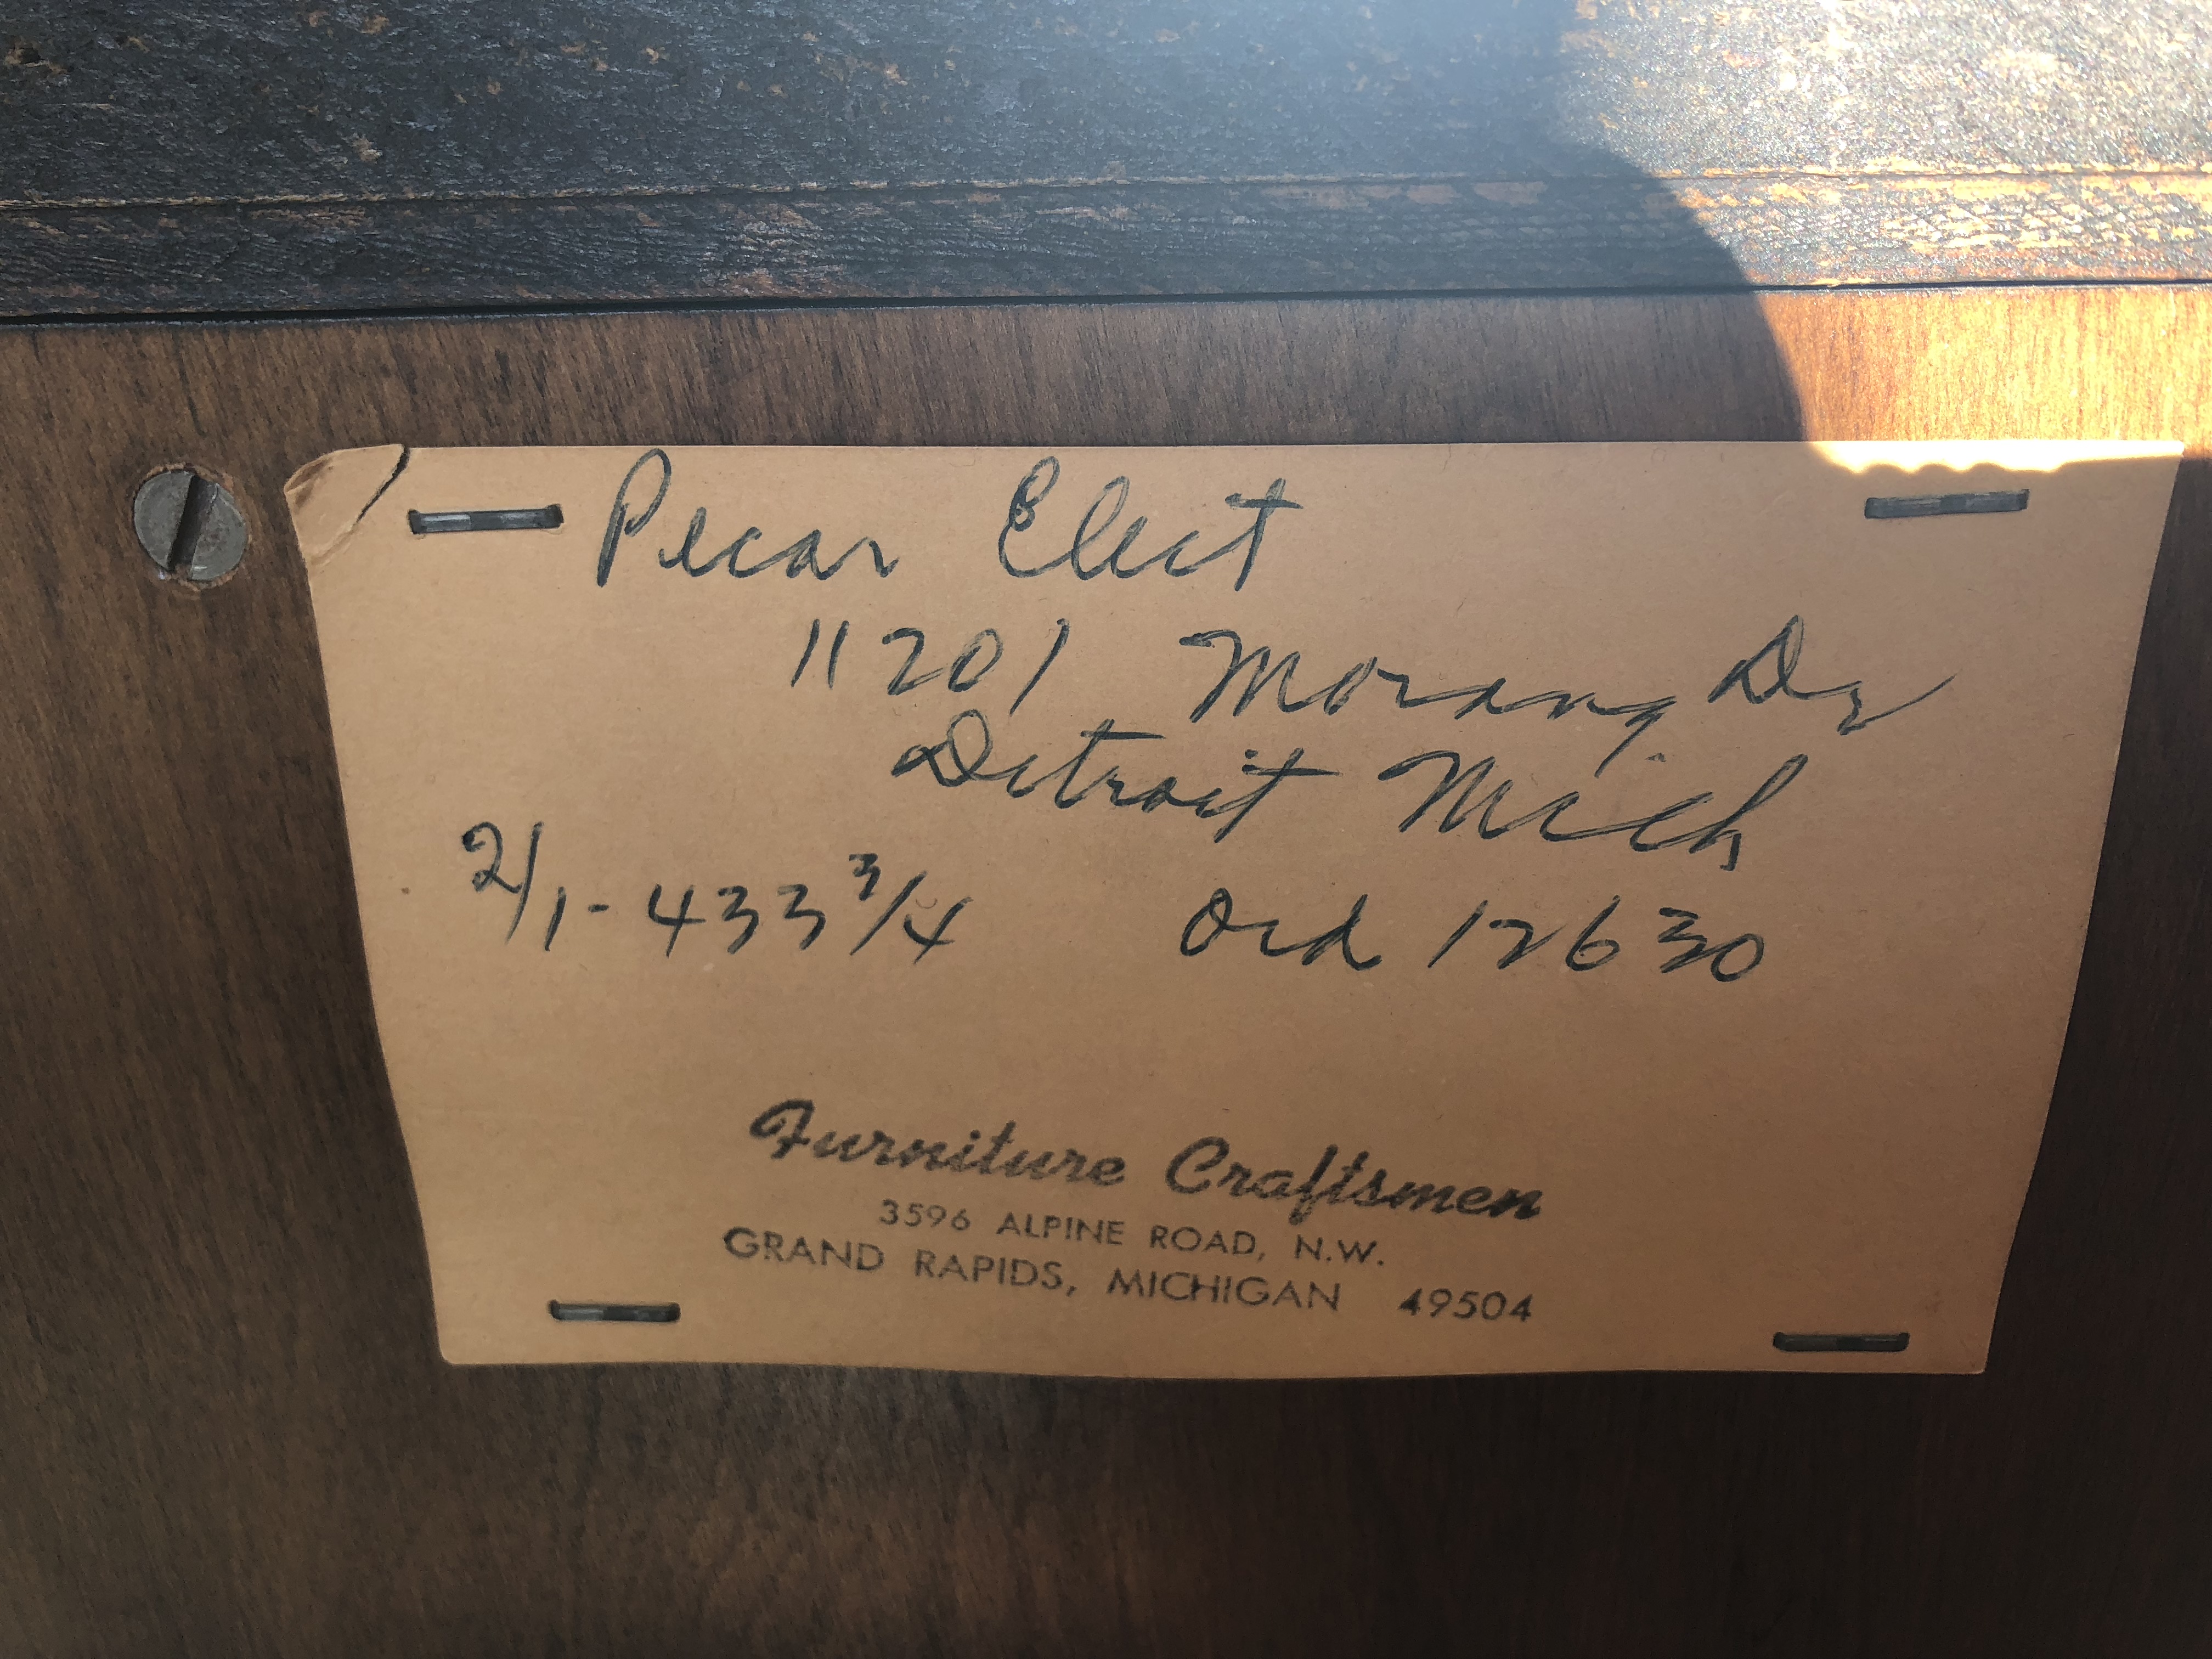 Pecar Elect
11201 Morang Dr
Detroit Mich
2/1-433 3/4 Ord 12630
Furniture Craftsmen
3596 ALPINE ROAD, N.W.
GRAND RAPIDS, MICHIGAN 49504